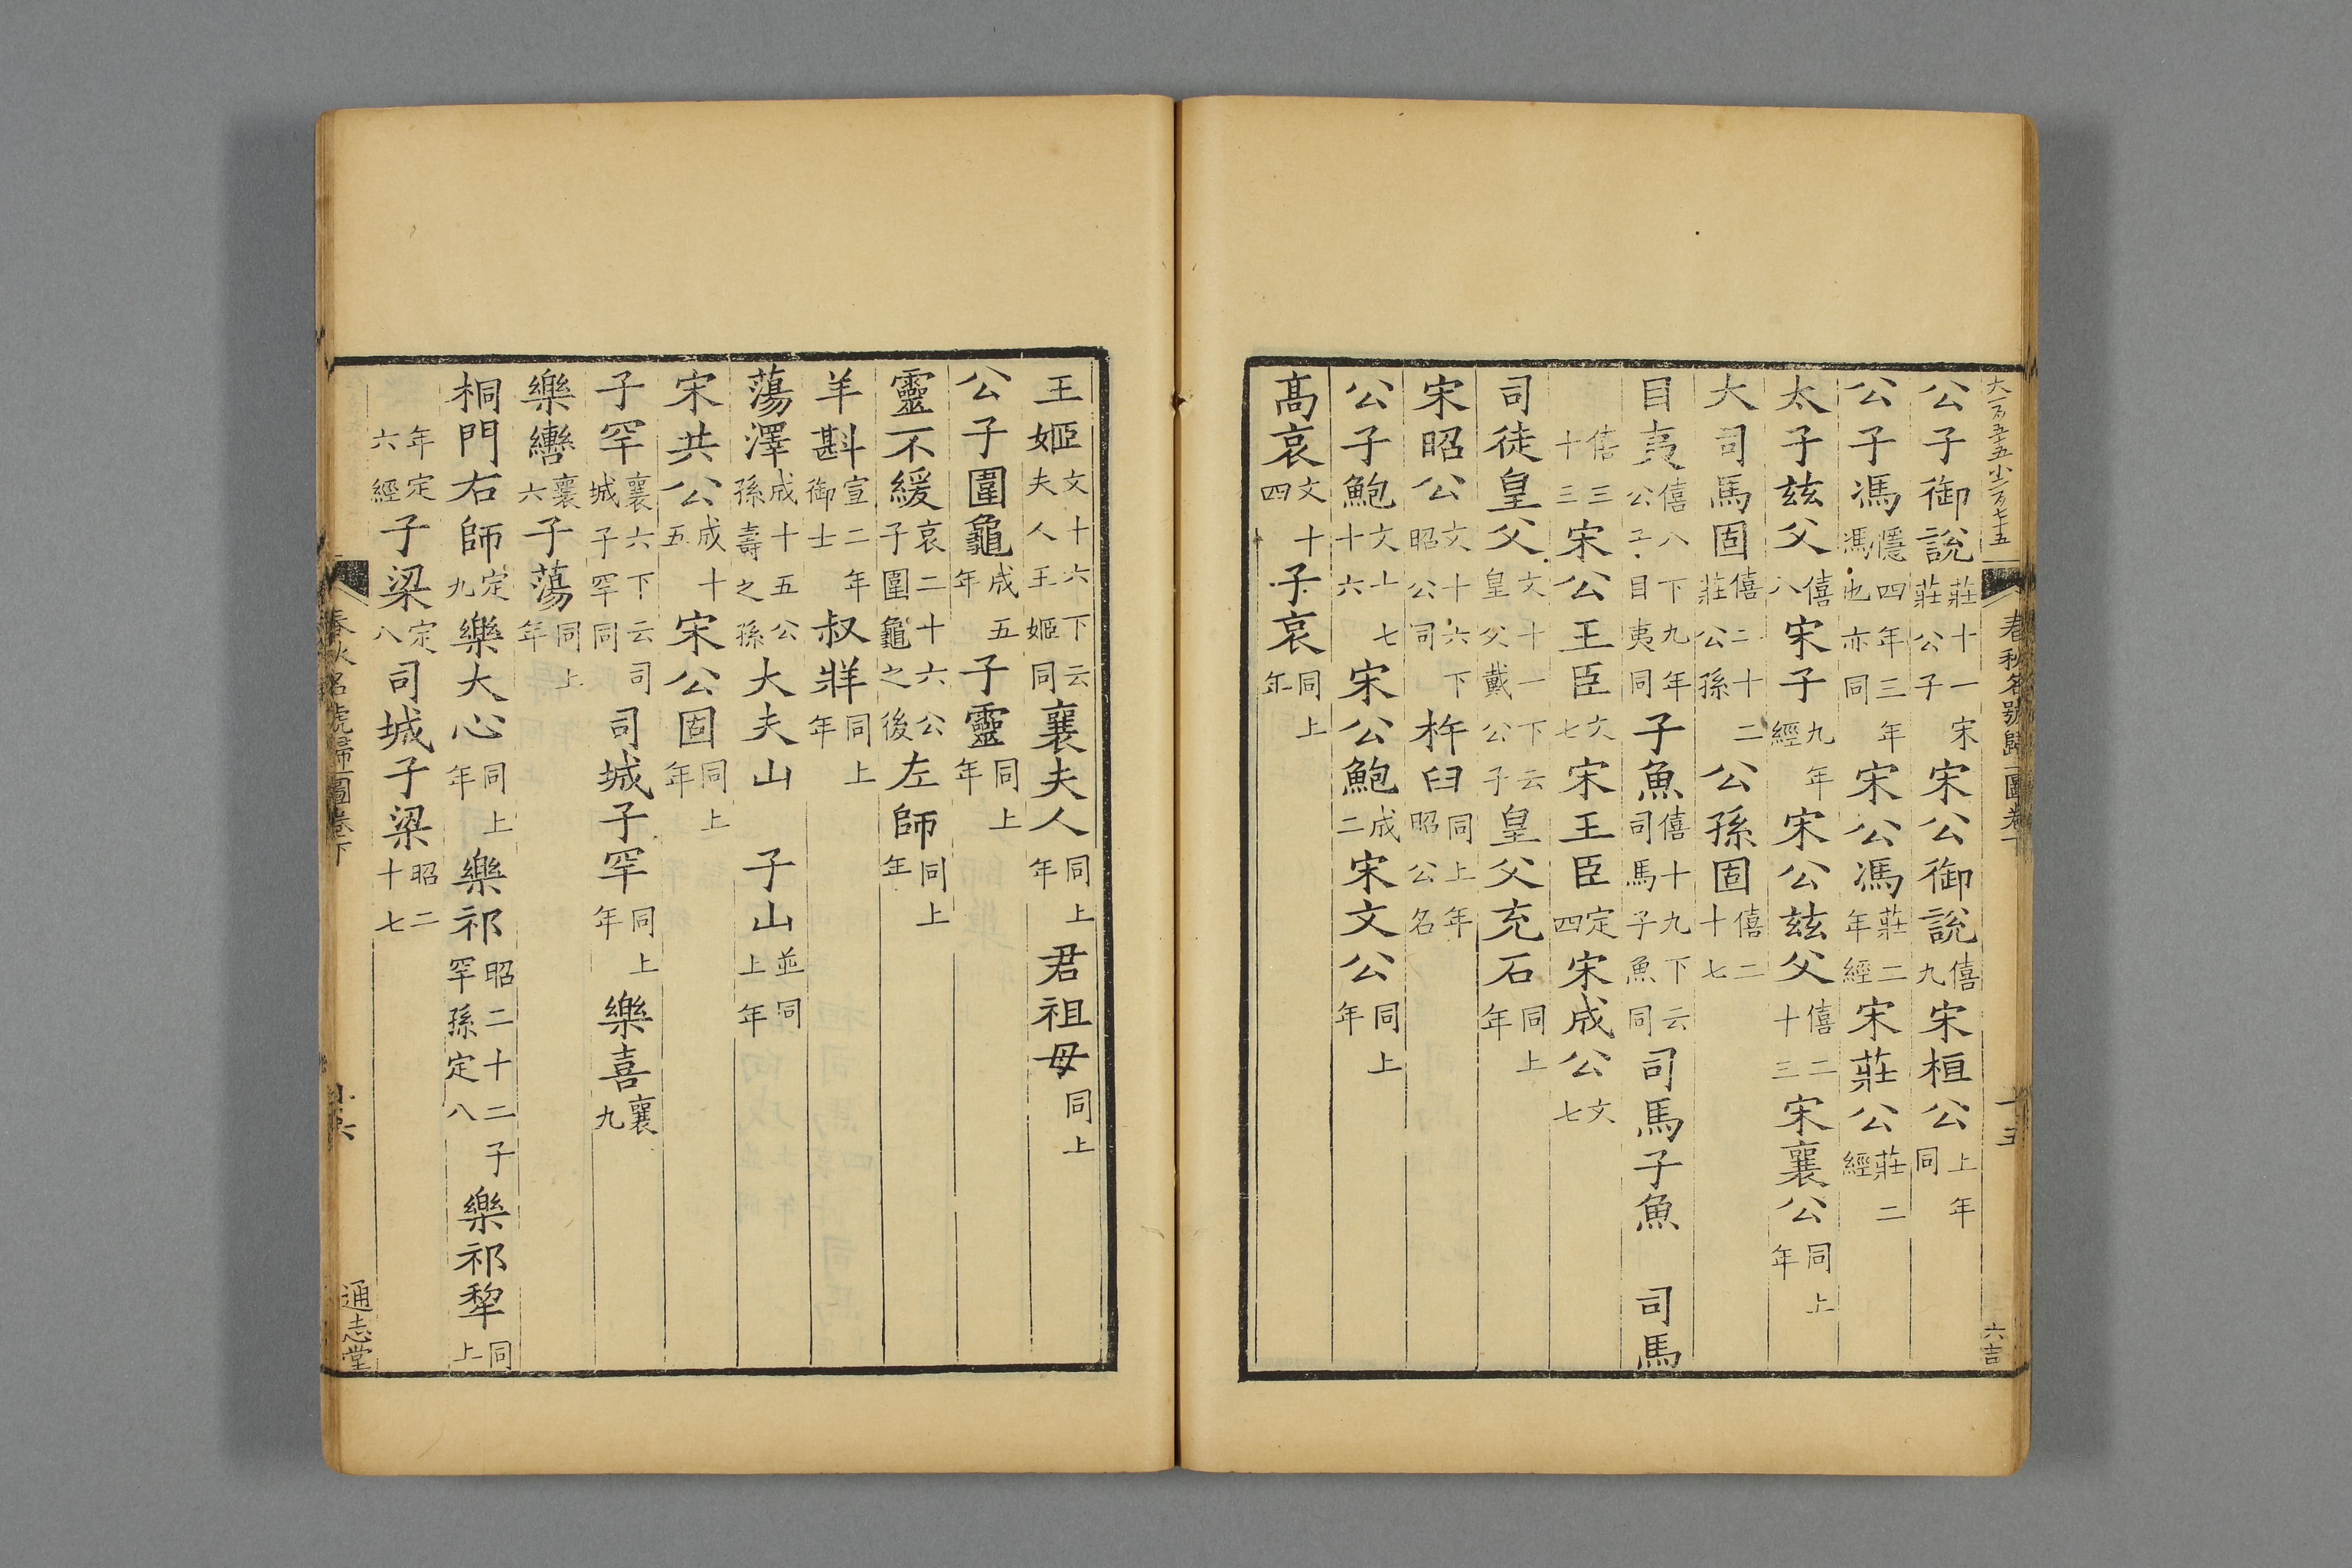 大一百五十五小二百七十五
春秋名號歸一圖卷下
十五
六吉
公子御說莊十一宋莊公子宋公御說僖九宋桓公上年同
公子馮隱四年三年馮也亦同宋公馮莊二年經宋莊公莊二經
太子茲父僖八宋子九年經宋公茲父僖二十三宋襄公同上年
大司馬固僖二十二莊公孫公孫固僖二十七
目夷僖八下九年公子目夷同子魚僖十九下云司馬子魚同司馬子魚 司馬
僖三十三宋公王臣文七宋王臣定四宋成公文七
司徒皇父文十一下云皇父戴公子皇父充石同上年
宋昭公文十六下昭公司杵臼同上年昭公名
公子鮑文十七十六宋公鮑成二宋文公同上年
高哀文十四子哀同上年
王姬文十六下云夫人王姬同襄夫人同上年君祖母同上
公子圍龜成五年子靈同上年
靈不緩哀二十六公子圍龜之後左師同上年
羊斟宣二年御士叔牂同上年
蕩澤成十五公孫壽之孫大夫山 子山並同上年
宋共公成十五宋公固同上年
子罕襄六下云司城子罕同司城子罕同上年樂喜襄九
樂轡襄六子蕩同上年
桐門右師定九樂大心同上年樂祁昭二十二子罕孫定八樂祁犂同上
年定六經子梁定八司城子梁昭二十七
春秋名號歸一圖卷下
通志堂